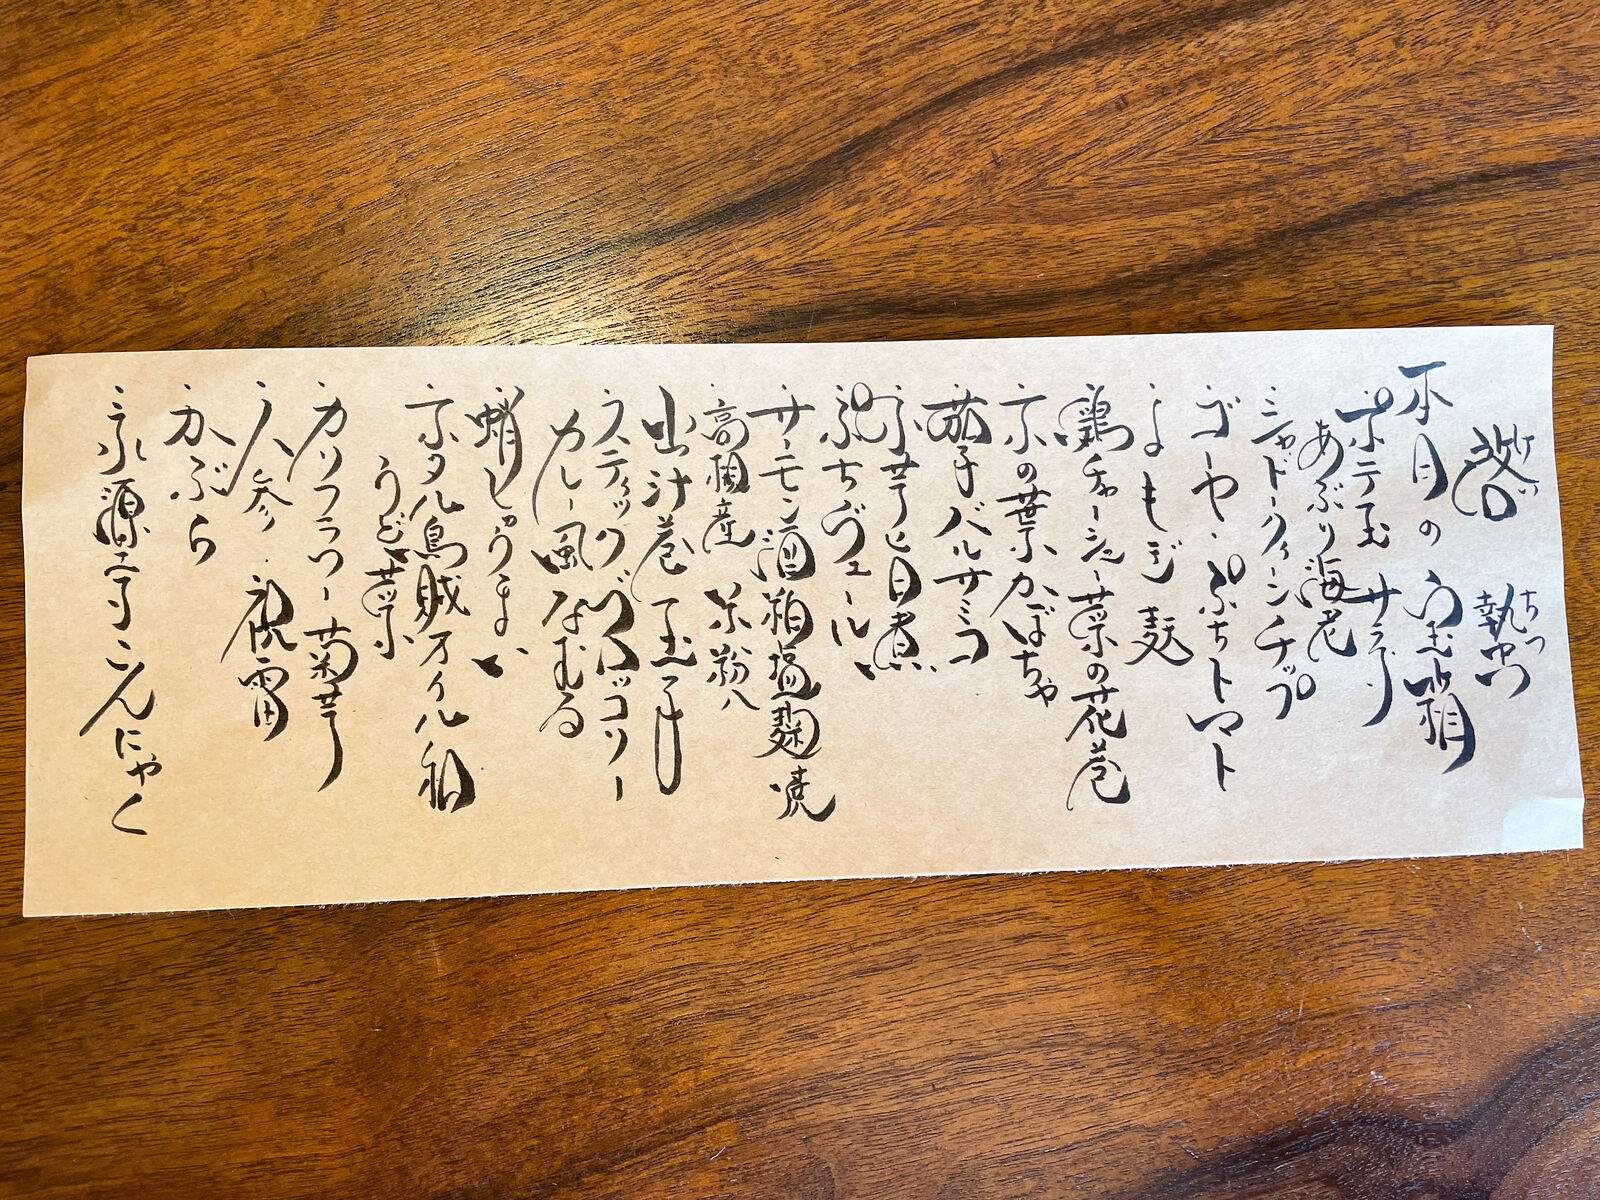 啓蟄
けいちつ
本月の玉手箱
ポテ玉サラダ
あぶり海老
シャドークィーンチップ
ゴーヤ・ぷちトマト
よもぎ麩
鶏チャーシュー菜の花巻
京の葉かぼちゃ
茄子バルサミコ
京芋と白煮
ぷちヴェール
サーモン酒粕塩麹焼
高槻産 米粉八
出汁巻玉子
スティックブロッコリー
カレー風なむる
蛸しゅうまい
ホタル烏賊オイル和
うど・芽菜
カリフラワー菊芋
人参・蕪
かぶら
こんにゃく